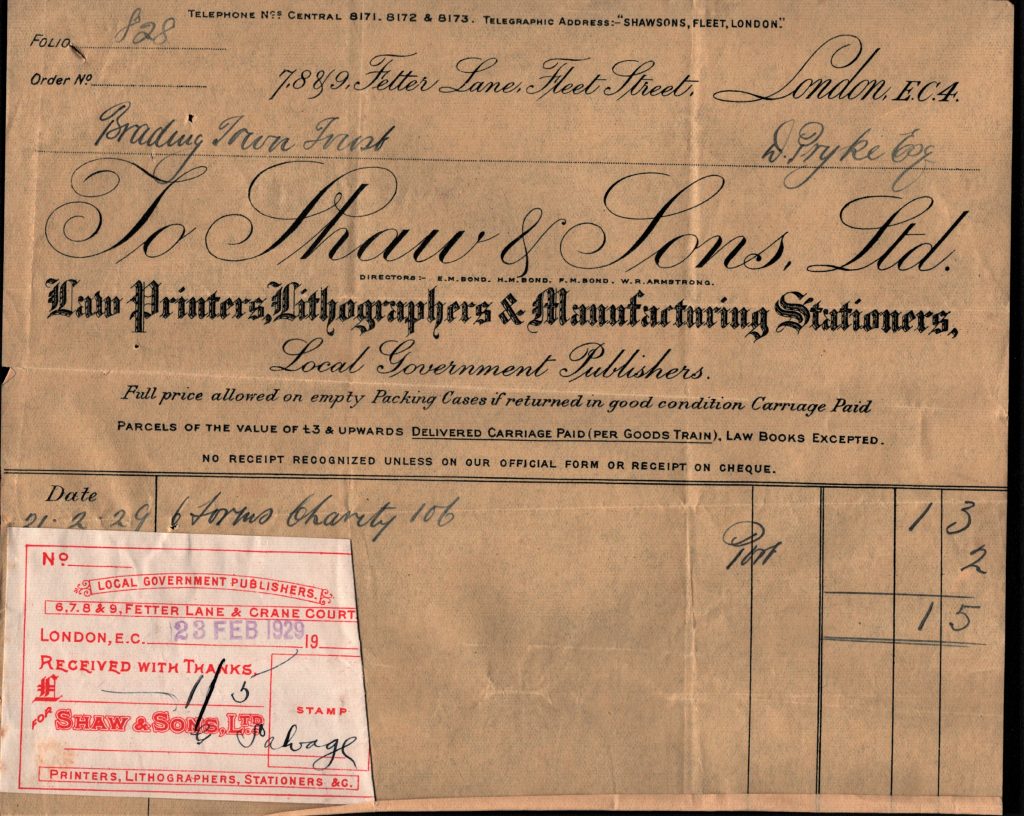 Telephone Nos Central 8171. 8172 & 8173. Telegraphic Address:- "Shawsons, Fleet, London."
Folio 828
Order No
7.8 & 9, Fetter Lane, Fleet Street, London, E.C.4.
Brading Town Trust D. Pryke Esq
To Shaw & Sons, Ltd.
Directors:- E.M. Bond. H.M. Bond. F.M. Bond. W.R. Armstrong.
Law Printers, Lithographers & Manufacturing Stationers,
Local Government Publishers.
Full price allowed on empty Packing Cases if returned in good condition Carriage Paid
Parcels of the value of £3 & upwards Delivered Carriage Paid (per Goods Train), Law Books Excepted.
No receipt recognized unless on our official form or receipt on cheque.
Date
21-2-29 6 forms Charity 106 1 3
Post 2
1 5
No
Local Government Publishers.
6, 7. 8 & 9, Fetter Lane & Crane Court
London, E.C. 23 FEB 1929 19
Received with Thanks,
£ 1/5
Stamp
for Shaw & Sons, Ltd
Salvage
Printers, Lithographers, Stationers &c.